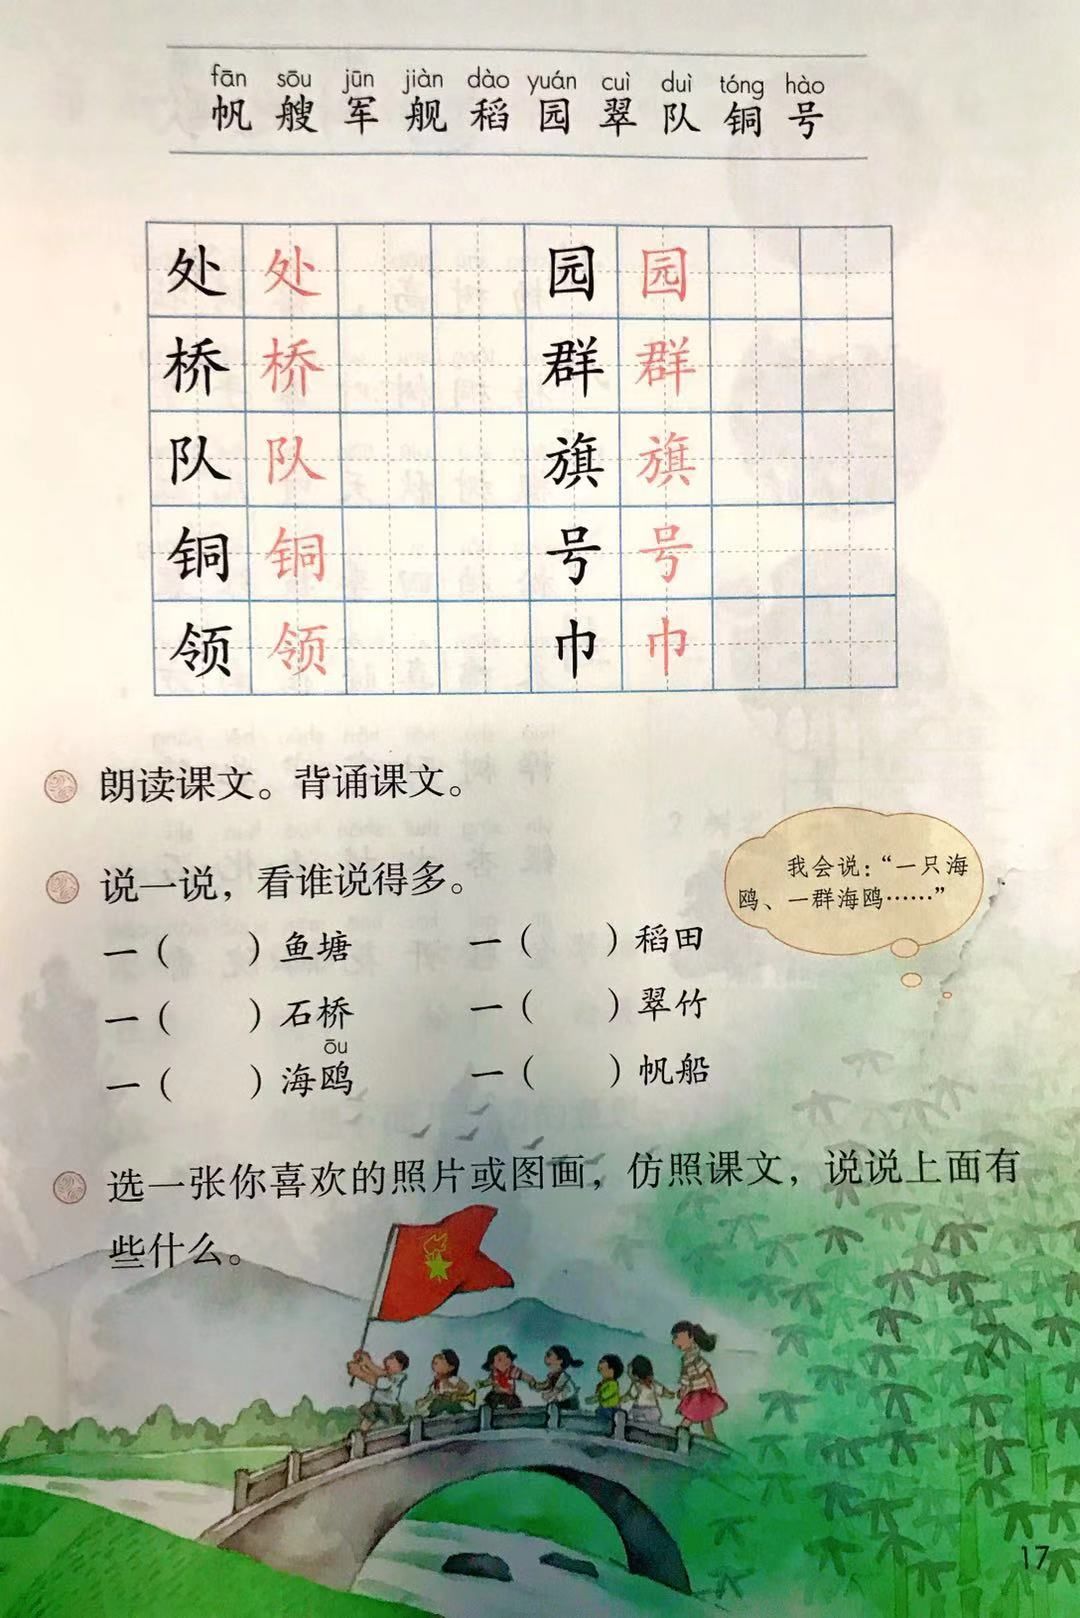 fān sōu jūn jiàn dào yuán cuì duì tóng hào
帆 艘 军 舰 稻 园 翠 队 铜 号
处 处 园 园
桥 桥 群 群
队 队 旗 旗
铜 铜 号 号
领 领 巾 巾
朗读课文。背诵课文。
说一说，看谁说得多。
我会说：“一只海
鸥、一群海鸥……”
一（ ）鱼塘 一（ ）稻田
一（ ）石桥 一（ ）翠竹
ōu
一（ ）海鸥 一（ ）帆船
选一张你喜欢的照片或图画，仿照课文，说说上面有
些什么。
17